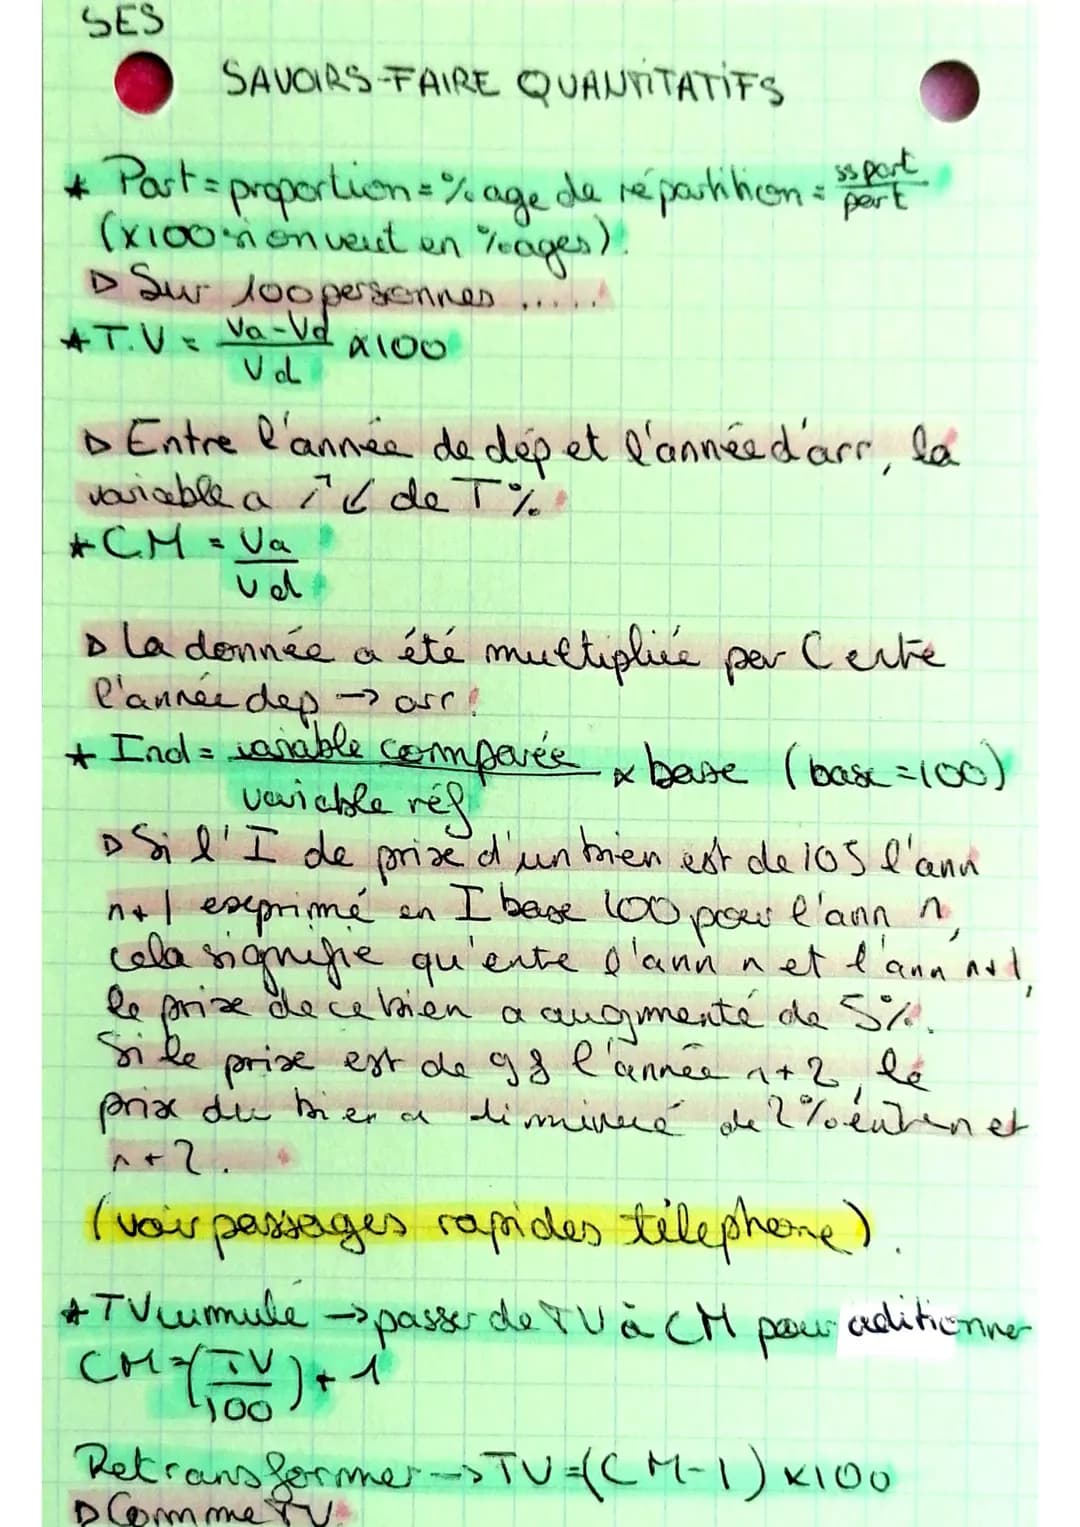 SES
SAVOIRS-FAIRE QUANTITATIFS
* Part = proportion = %age de répartition = ss part / part
(x100 si on veut en %ages).
▷ Sur 100 personnes .....
* T.V = Va-Vd / Vd x100
▷ Entre l'année de dép et l'année d'arr, la
variable a ↗ ↙ de T%
* CM = Va / Vd
▷ La donnée a été multipliée par C entre
l'année dep → arr
* Ind = variable comparée / variable réf x base (base = 100)
▷ Si l'I de prix d'un bien est de 105 l'ann
n+1 exprimé en I base 100 pour l'ann n,
cela signifie qu'entre l'ann n et l'ann n+1,
le prix de ce bien a augmenté de 5%.
Si le prix est de 98 l'année n+2, le
prix du bien a diminué de 2% entre n et
n+2.
(voir passages rapides téléphone).
* TV cumulé → passer de TV à CM pour aditionner
CM = (TV / 100) + 1
Retransformer → TV = (CM-1) x100
▷ Comme TV.